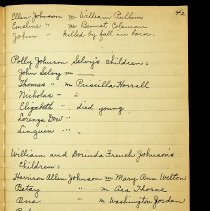 42
Ellen Johnson m William Pullim
Emeline " m Bennet Coleman
John - killed by fall in barn.
Polly Johnson Selvy's Children:
John Selvy m
Thomas " m Priscilla Horrall
Nicholas "
Elizabeth - died young
Lorenzo Dow
Linguis "
William and Dorinda French Johnson's
Children:
Harrison Allen Johnson m Mary Ann Welton
Betsy " m Asa Thorne
Asra " m Washington Jordan